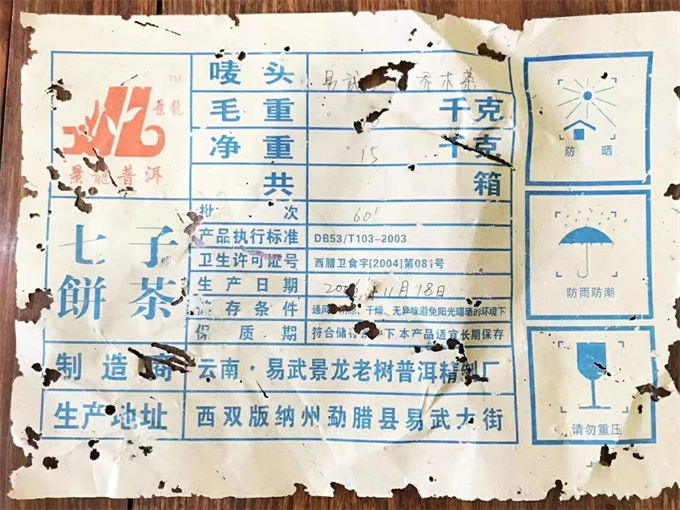 唛头 易武 乔木茶
毛重 千克
净重 15 千克
共 箱
TM
景龍
景龍普洱
七子
餅茶
批次 601
产品执行标准 DB53/T103-2003
卫生许可证号 西腊卫食字[2004]第081号
生产日期 年11月18日
储存条件 通风、干燥、无异味避免阳光曝晒的环境下
保质期 符合储存条件下本产品适宜长期保存
制造商 云南·易武景龙老树普洱精制厂
生产地址 西双版纳州勐腊县易武大街
防晒
防雨防潮
请勿重压